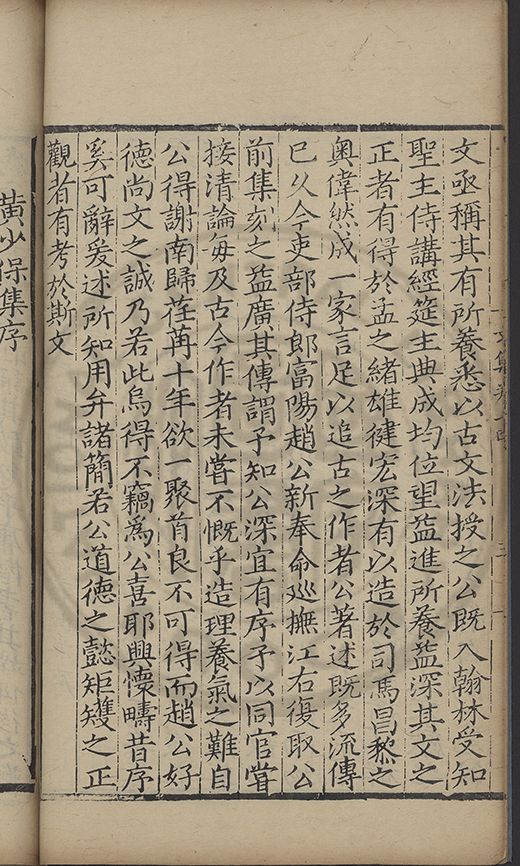 文亟稱其有所養悉以古文法授之公既入翰林受知
聖主侍講經筵主典成均位望益進所養益深其文之
正者有得於孟之緒雄健宏深有以造於司馬昌黎之
奥偉然成一家言足以追古之作者公著述既多流傳
已久今吏部侍郎富陽趙公新奉命巡撫江右復取公
前集刻之益廣其傳謂予知公深宜有序予以同官嘗
接清論每及古今作者未嘗不慨乎造理養氣之難自
公得謝南歸荏苒十年欲一聚首良不可得而趙公好
德尚文之誠乃若此烏得不竊為公喜耶興懷疇昔序
奚可辭爰述所知用弁諸簡若公道德之懿矩矱之正
觀者有考於斯文
黄少保集序